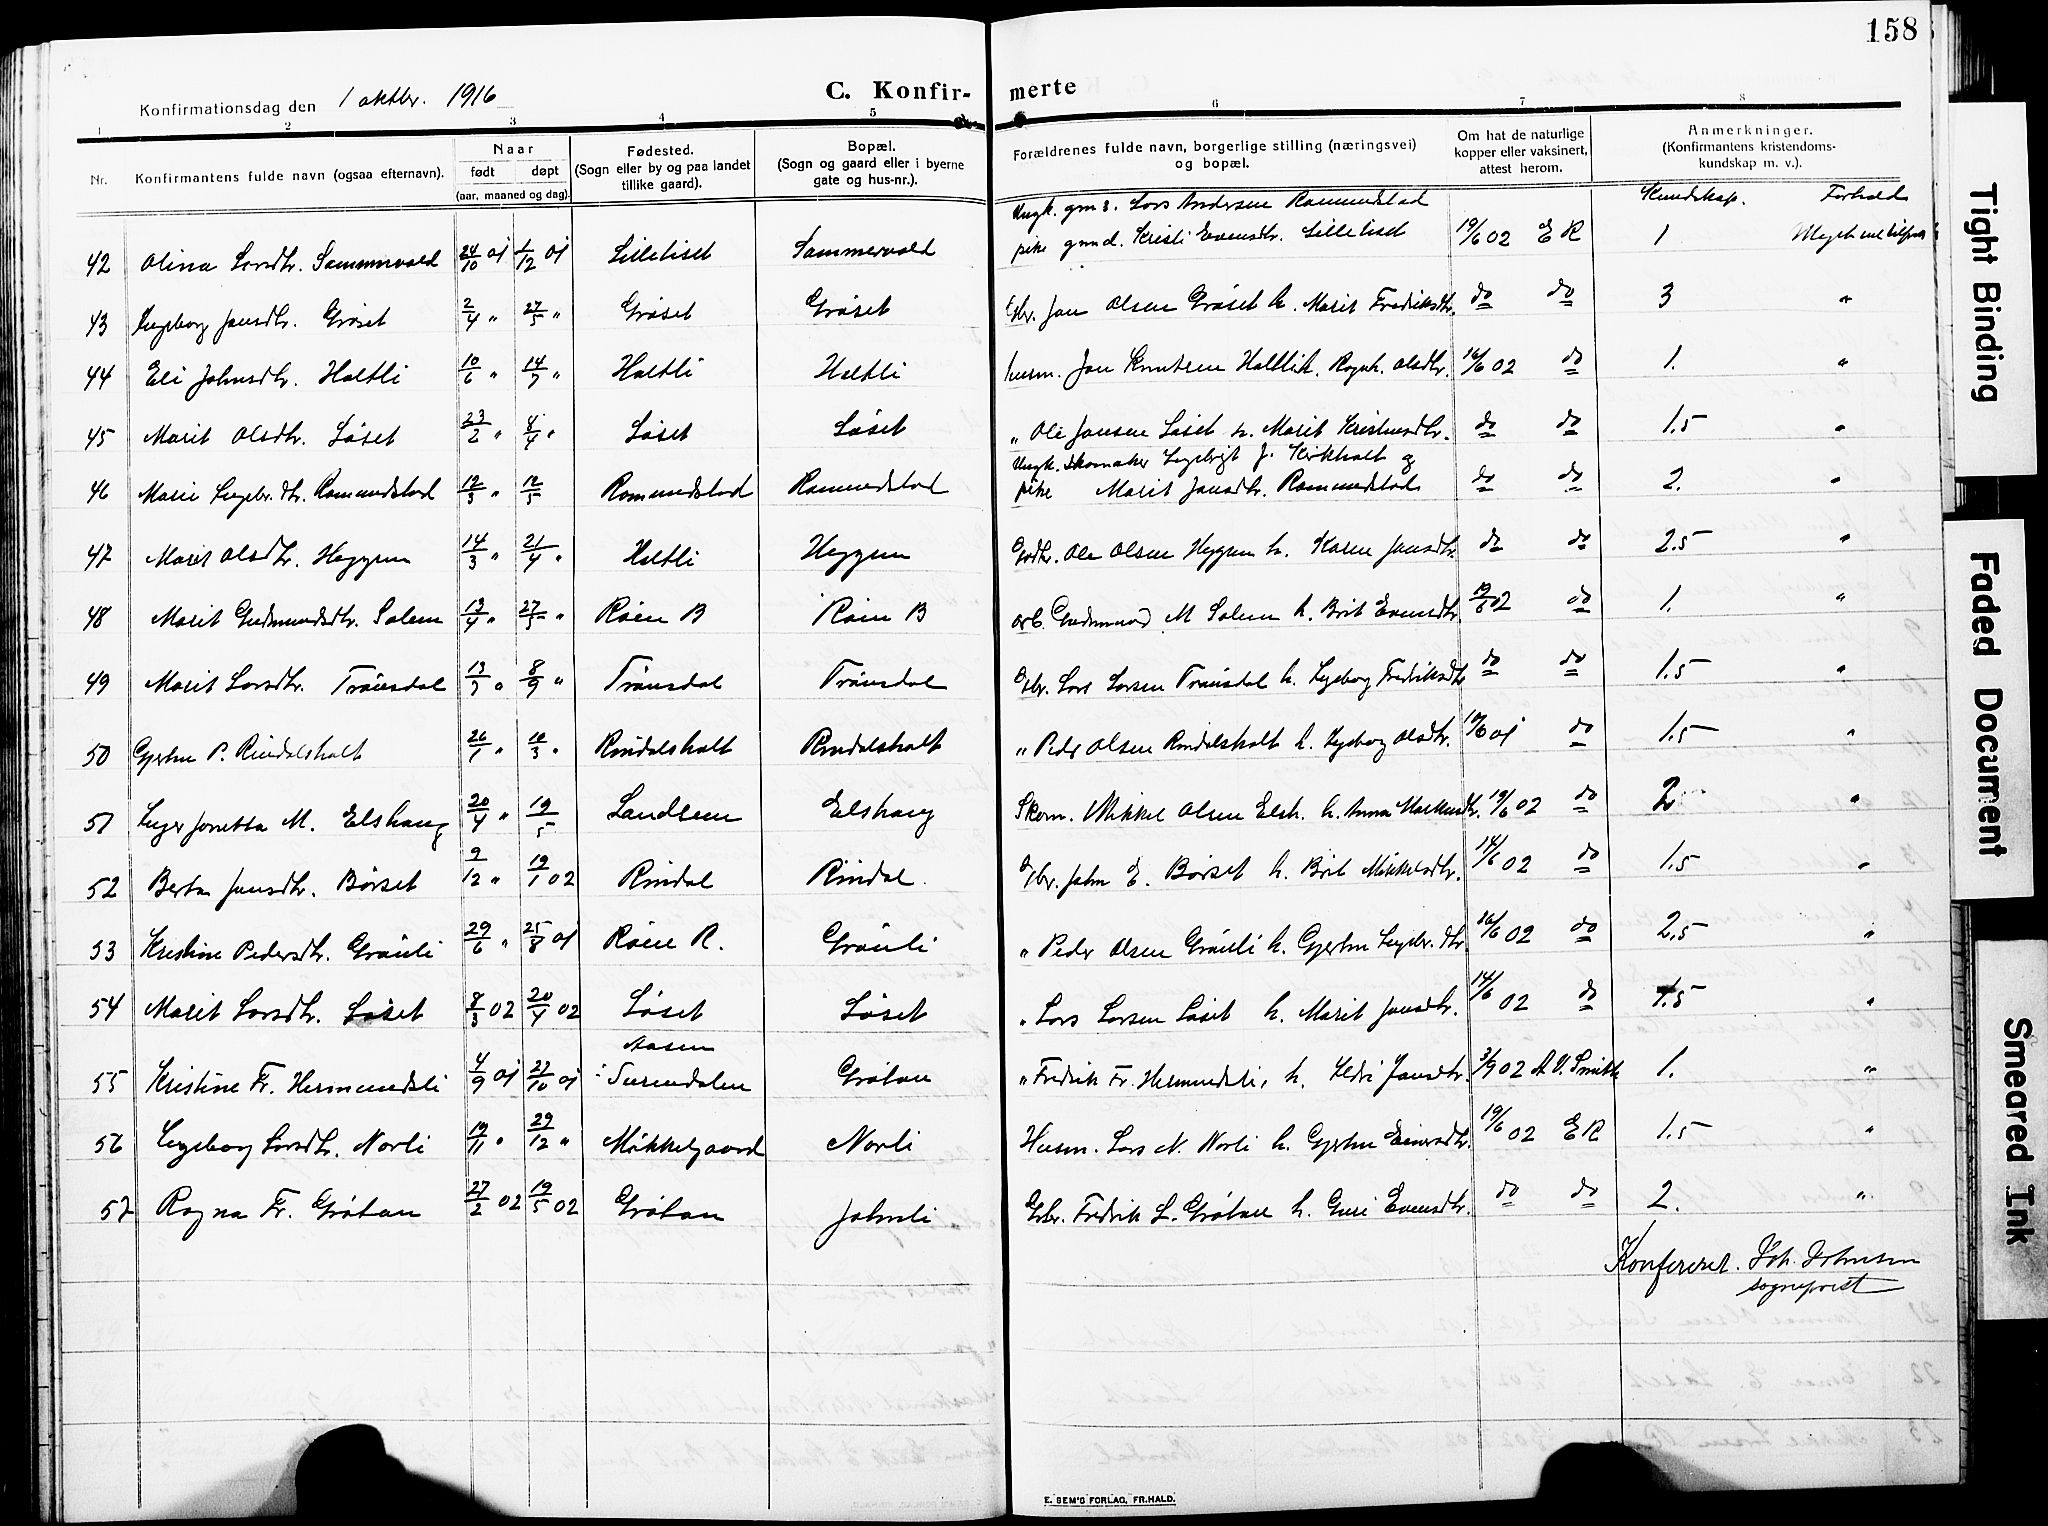 158
Konfirmationsdag den 1 oktbr. 1916
C. Konfir- merte
1 2 3 4 5 6 7 8
Nr.
Konfirmantens fulde navn (ogsaa efternavn).
Naar
født døpt
(aar, maaned og dag).
Fødested.
(Sogn eller by og paa landet
tillike gaard).
Bopæl.
(Sogn og gaard eller i byerne
gate og hus-nr.).
Forældrenes fulde navn, borgerlige stilling (næringsvei)
og bopæl.
Om hat de naturlige
kopper eller vaksinert,
attest herom.
Anmerkninger.
(Konfirmantens kristendoms-
kundskap m. v.).
Kundskap. Forhold
Ungk. gm s. Lars Andersen Romundstad
42 Olina Larsdtr. Sammervold 24/10 01 1/12 01 Lilletiset Sammervold pike gmd. Kristi Evensdtr. Lilletiset 19/6 02 E R 1
43 Ingeborg Jonsdtr. Grøset 2/4 " 27/5 " Grøset Grøset Gbr. Jon Olsen Grøset h. Marit Fredriksdtr. do do 3 "
44 Eli Johnsdtr. Holtli 10/6 " 14/7 " Holtli Holtli husm. Jon Knutsen Holtli h. Ragnh. Olsdtr. 16/6 02 do 1. "
45 Marit Olsdtr. Løset 23/2 " 8/4 " Løset Løset " Ole Jonsen Løset h. Marit Kristensdtr. do do 1.5 "
Ungk. skomaker Ingebrigt J. Kirkholt og
46 Marie Ingebr. dtr. Romundstad 12/3 " 12/5 Romundstad Romundstad pike Marit Jonsdtr. Romundstad do do 2. "
47 Marit Olsdtr. Heggem 14/3 " 21/4 " Holtli Heggem Ole Olsen Heggem h. Karen Jonsdtr. do do 2.5 "
48 Marit Gudmundsdtr. Solem 13/4 " 27/5 " Røen B Røen B arb. Gudmund M Solem h. Brit Evensdtr. 19/6 02 do 1. "
49 Marit Larsdtr. Trønsdal 13/7 " 8/9 " Trønsdal Trønsdal Gbr. Lars Larsen Trønsdal h. Ingeborg Fredriksdtr do do 1.5 "
50 Gjertru P. Rindalsholt 26/1 " 10/3 " Rindalsholt Rindalsholt " Peder Olsen Rindalsholt h. Ingeborg Olsdtr. do 1.5 "
51 Inger Jonetta M. Elshaug 20/4 " 19/5 Landsem Elshaug Skom. Mikkel Olsen Elsh. h. Anna Markusdtr. 19/6 02 do 2 "
52 Berta Jonsdtr. Børset 9/12 " 19/1 02 Rindal Rindal. Gbr. John E. Børset h. Brit Mikkelsdtr. 14/6 02 do 1.5 "
53 Kristine Pedersdtr. Grønli 29/6 " 25/8 01 Røen R. Grønli " Peder Olsen Grønli h. Gjertru Ingebr. dtr 16/6 02 do 2.5 "
54 Marit Larsdtr. Løset 8/3 02 20/4 02 Løset Løset " Lars Larsen Løset h. Marit Jonsdtr. 14/6 02 do 1.5 "
Aasen
55 Kristine Fr. Hermundsli 4/9 01 27/10 01 Surendalen Grøtan " Fredrik Fr. Hermundsli, h. Ildri Jonsdtr. 3/9 02 A. V. Smith 1. "
56 Ingeborg Larsdtr. Norli 19/11 " 29/12 " Mikkelgaard Norli Husm. Lars N. Norli h. Gjertru Einarsdtr. 19/6 02 E R 1.5 "
57 Ragna Fr. Grøtan 27/2 02 19/5 02 Grøtan Johnsli Gbr. Fredrik L. Grøtan h. Guri Evensdtr. do do 2. "
Konfereret. Joh. Johnsen
sogneprest
E. SEM'S FORLAG, FR.HALD.
Tight Binding
Faded Document
Smeared Ink